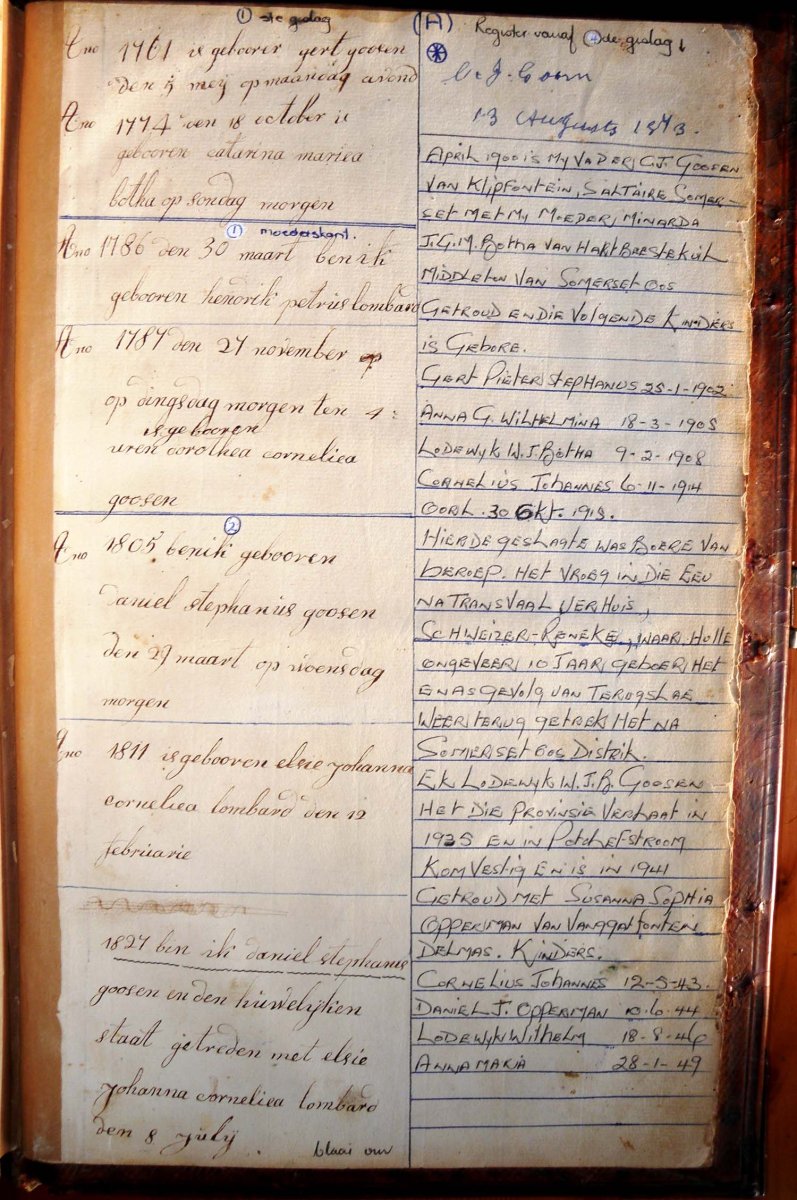 ① ste geslag
Ano 1761 is gebooren gert goosen
den 5 meij op maandag avond
Ano 1774 den 18 october is
gebooren catarina mariea
botha op sondag morgen
① moederskant.
Ano 1786 den 30 maart ben ik
gebooren hendrik petrus lombard
Ano 1787 den 27 november
op dingsdag morgen ten 4
is gebooren
uren dorothea corneliea
goosen
②
Ano 1805 ben ik gebooren
daniel stephanus goosen
den 27 maart op woensdag
morgen
Ano 1811 is gebooren elsie johanna
corneliea lombard den 12
februarie
1827 ben ik daniel stephanus
goosen en den huwelijken
staat getreden met elsie
johanna corneliea lombard
den 8 july
blaai om
(A) Register vanaf ④de geslag ↓
13 Augusts 1873.
APRIL 1900 IS MY VADER C.J. GOOSEN
VAN KLIPFONTEIN, SALTAIRE SOMER-
SET MET MY MOEDER MINARDA
J.G.M. BOTHA VAN HARTBEESTEKUIL
MIDDLETON VAN SOMERSET OOS
GETROUD EN DIE VOLGENDE KINDERS
IS GEBORE.
GERT PIETER STEPHANUS 25-1-1902
ANNA G. WILHELMINA 18-3-1905
LODEWYK W.J. BOTHA 9-2-1908
CORNELIUS JOHANNES 6-11-1914
OORL. 30 OKT. 1918.
HIERDE GESLAGTE WAS BOERE VAN
BEROEP. HET VROEG IN DIE EEU
NA TRANSVAAL VERHUIS,
SCHWEIZER-RENEKE, WAAR HULLE
ONGEVEER 10 JAAR GEBOER HET
EN AS GEVOLG VAN TERUGSLAE
WEER TERUG GETREK HET NA
SOMERSET OOS DISTRIK.
EK LODEWYK W.J.B. GOOSEN
HET DIE PROVINSIE VERLAAT IN
1935 EN IN POTCHEFSTROOM
KOM VESTIG EN IS IN 1941
GETROUD MET SUSANNA SOPHIA
OPPERMAN VAN VANGGATFONTEIN
DELMAS. KINDERS.
CORNELIUS JOHANNES 12-5-43.
DANIEL J. OPPERMAN 10.6.44
LODEWYK WILHELM 18-8-46
ANNA MARIA 28-1-49